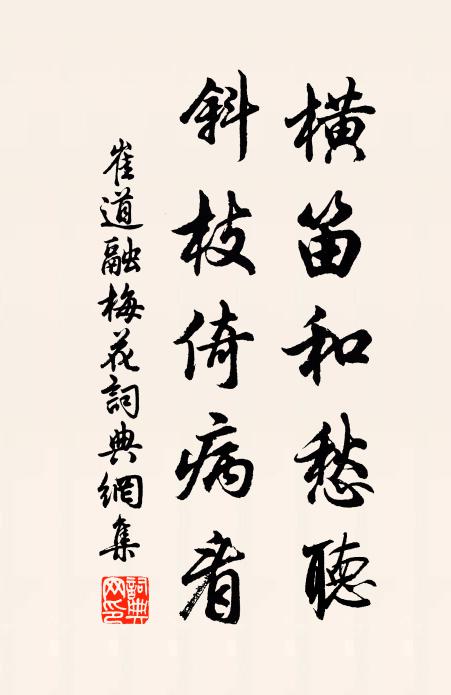 橫笛和愁聽
斜枝倚病看
崔道融梅花詞典網集
詞典網印